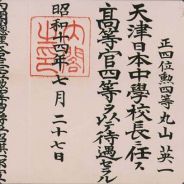 正四位勲四等丸山英一
天津日本中學校長ニ任ス
高等官四等ヲ以テ待遇セラル
昭和十四年七月二十七日
内閣之印